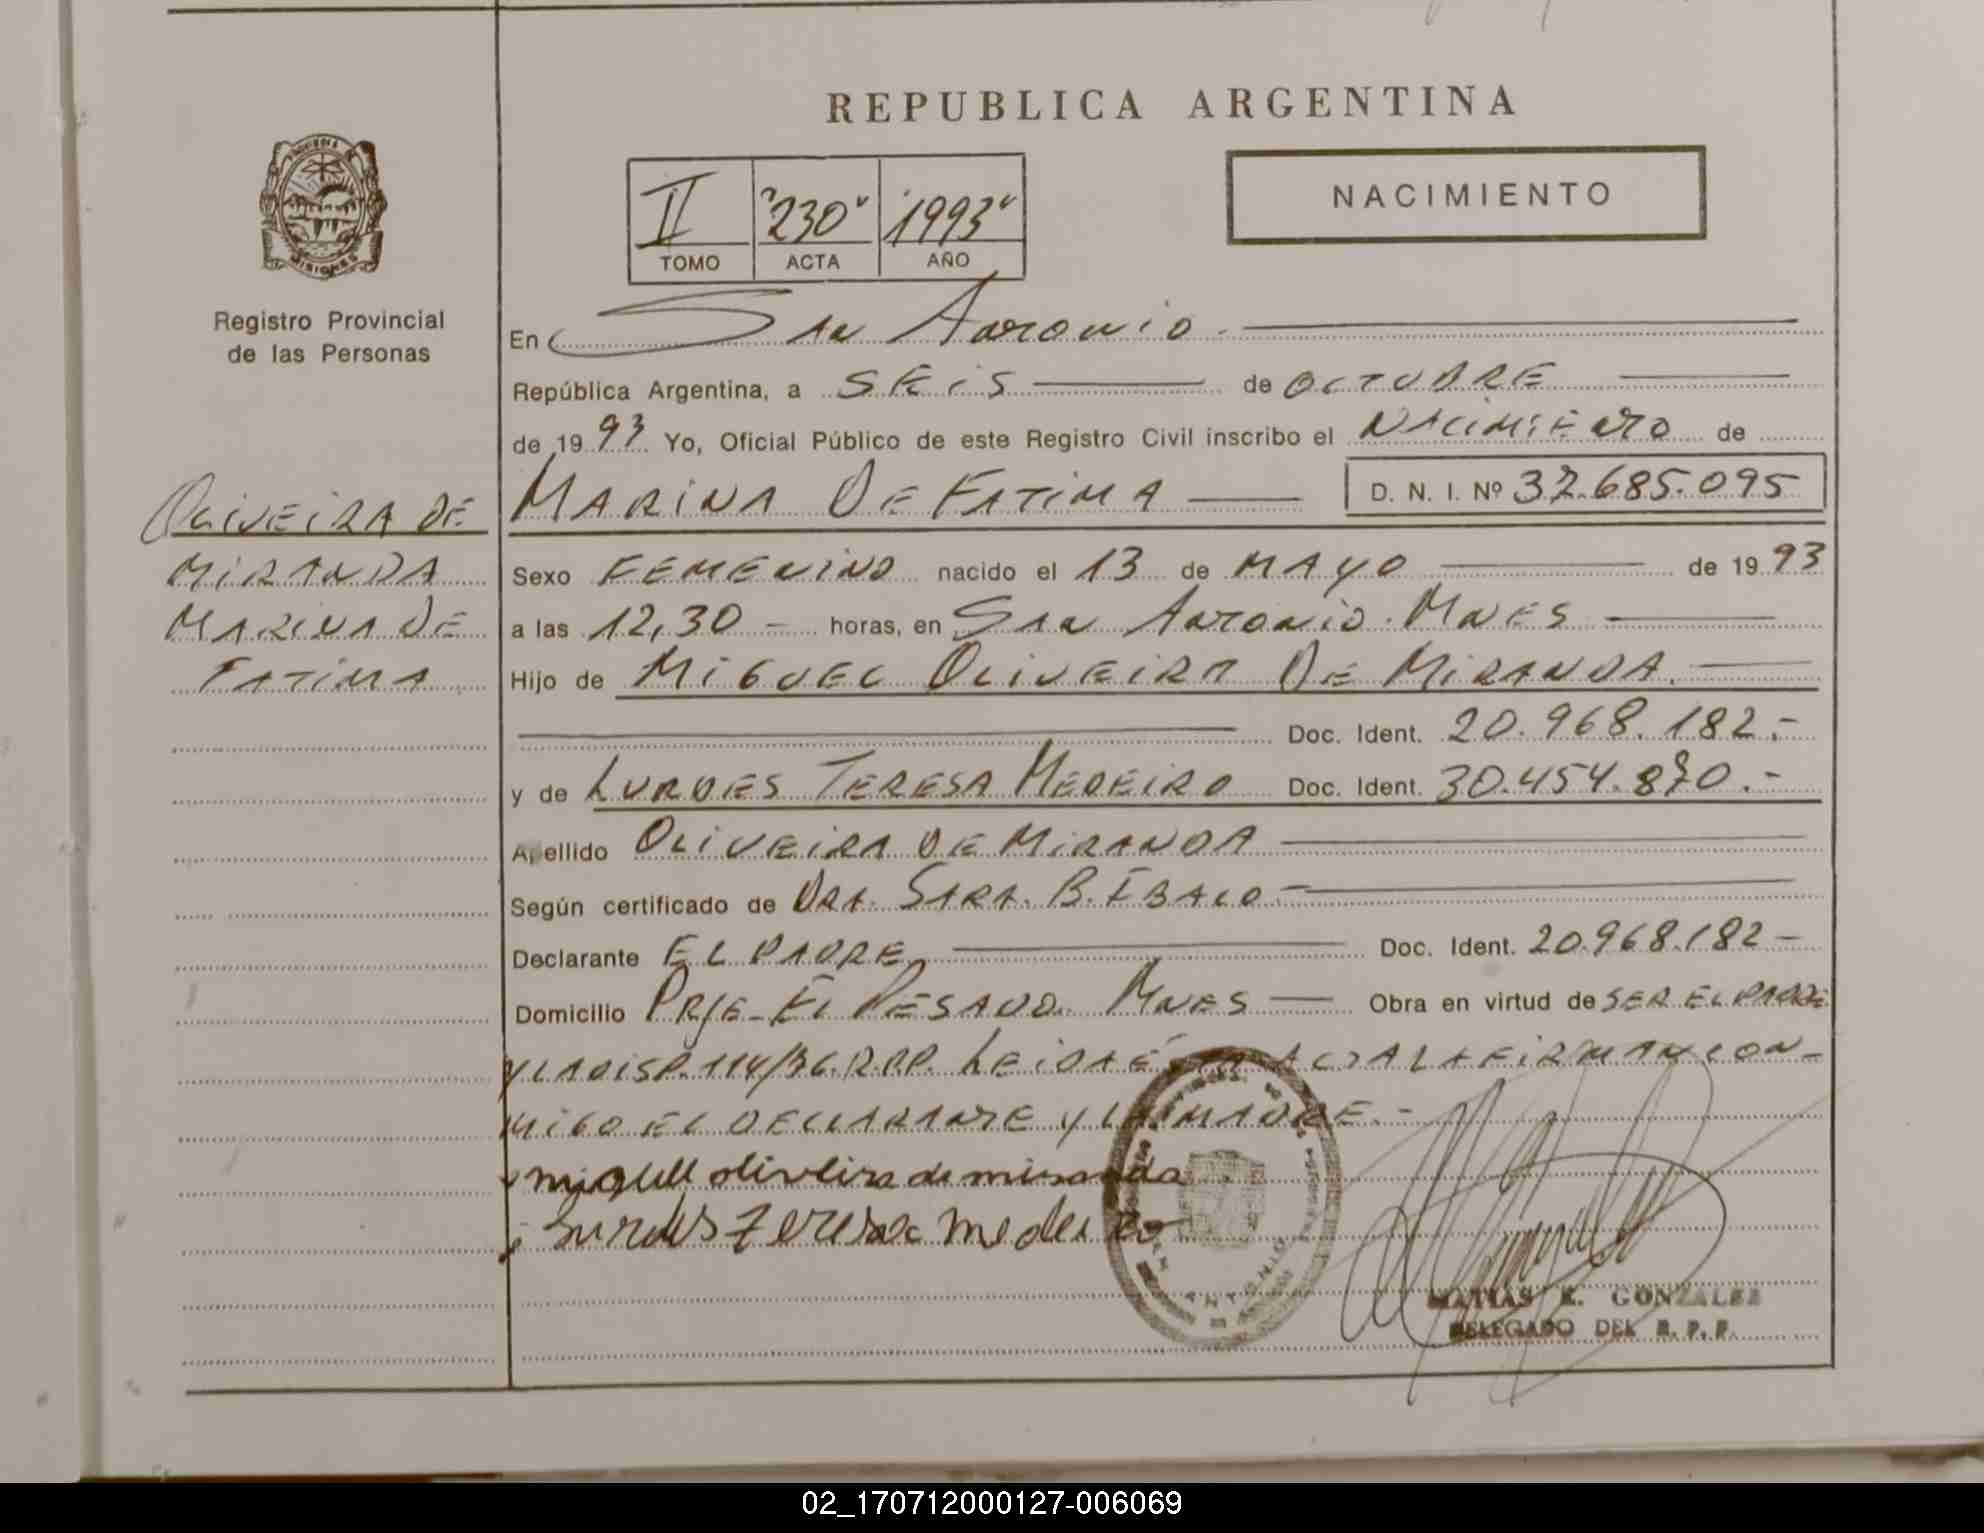 REPUBLICA ARGENTINA
NACIMIENTO
II "230" "1993"
TOMO ACTA AÑO
MISIONES
Registro Provincial
de las Personas
En San Antonio.
República Argentina, a SEIS de OCTUBRE
de 1993 Yo, Oficial Público de este Registro Civil inscribo el NACIMIENTO de
MARINA DE FATIMA D. N. I. Nº 37.685.095
OLIVEIRA DE
MIRANDA
MARINA DE
FATIMA
Sexo FEMENINO nacido el 13 de MAYO de 1993
a las 12,30 - horas, en San Antonio. Mnes
Hijo de MIGUEL OLIVEIRA DE MIRANDA.
Doc. Ident. 20.968.182.-
y de LURDES TERESA MEDEIRO Doc. Ident. 30.454.870.-
Apellido OLIVEIRA DE MIRANDA
Según certificado de DRA. SARA. B. 
Declarante EL PADRE Doc. Ident. 20.968.182-
Domicilio PRJE- EL PESADO. MNES Obra en virtud de SER EL PADRE
Y LA DISP. R.P.P. LEIDA ÉSTA ACTA LA FIRMAN CON-
MIGO EL DECLARANTE Y LA MADRE.-
miguel oliveira de miranda
Lurdes Teresa medeiro
SAN ANTONIO
MATIAS E. GONZALEZ
DELEGADO DEL R. P. P.
02_170712000127-006069